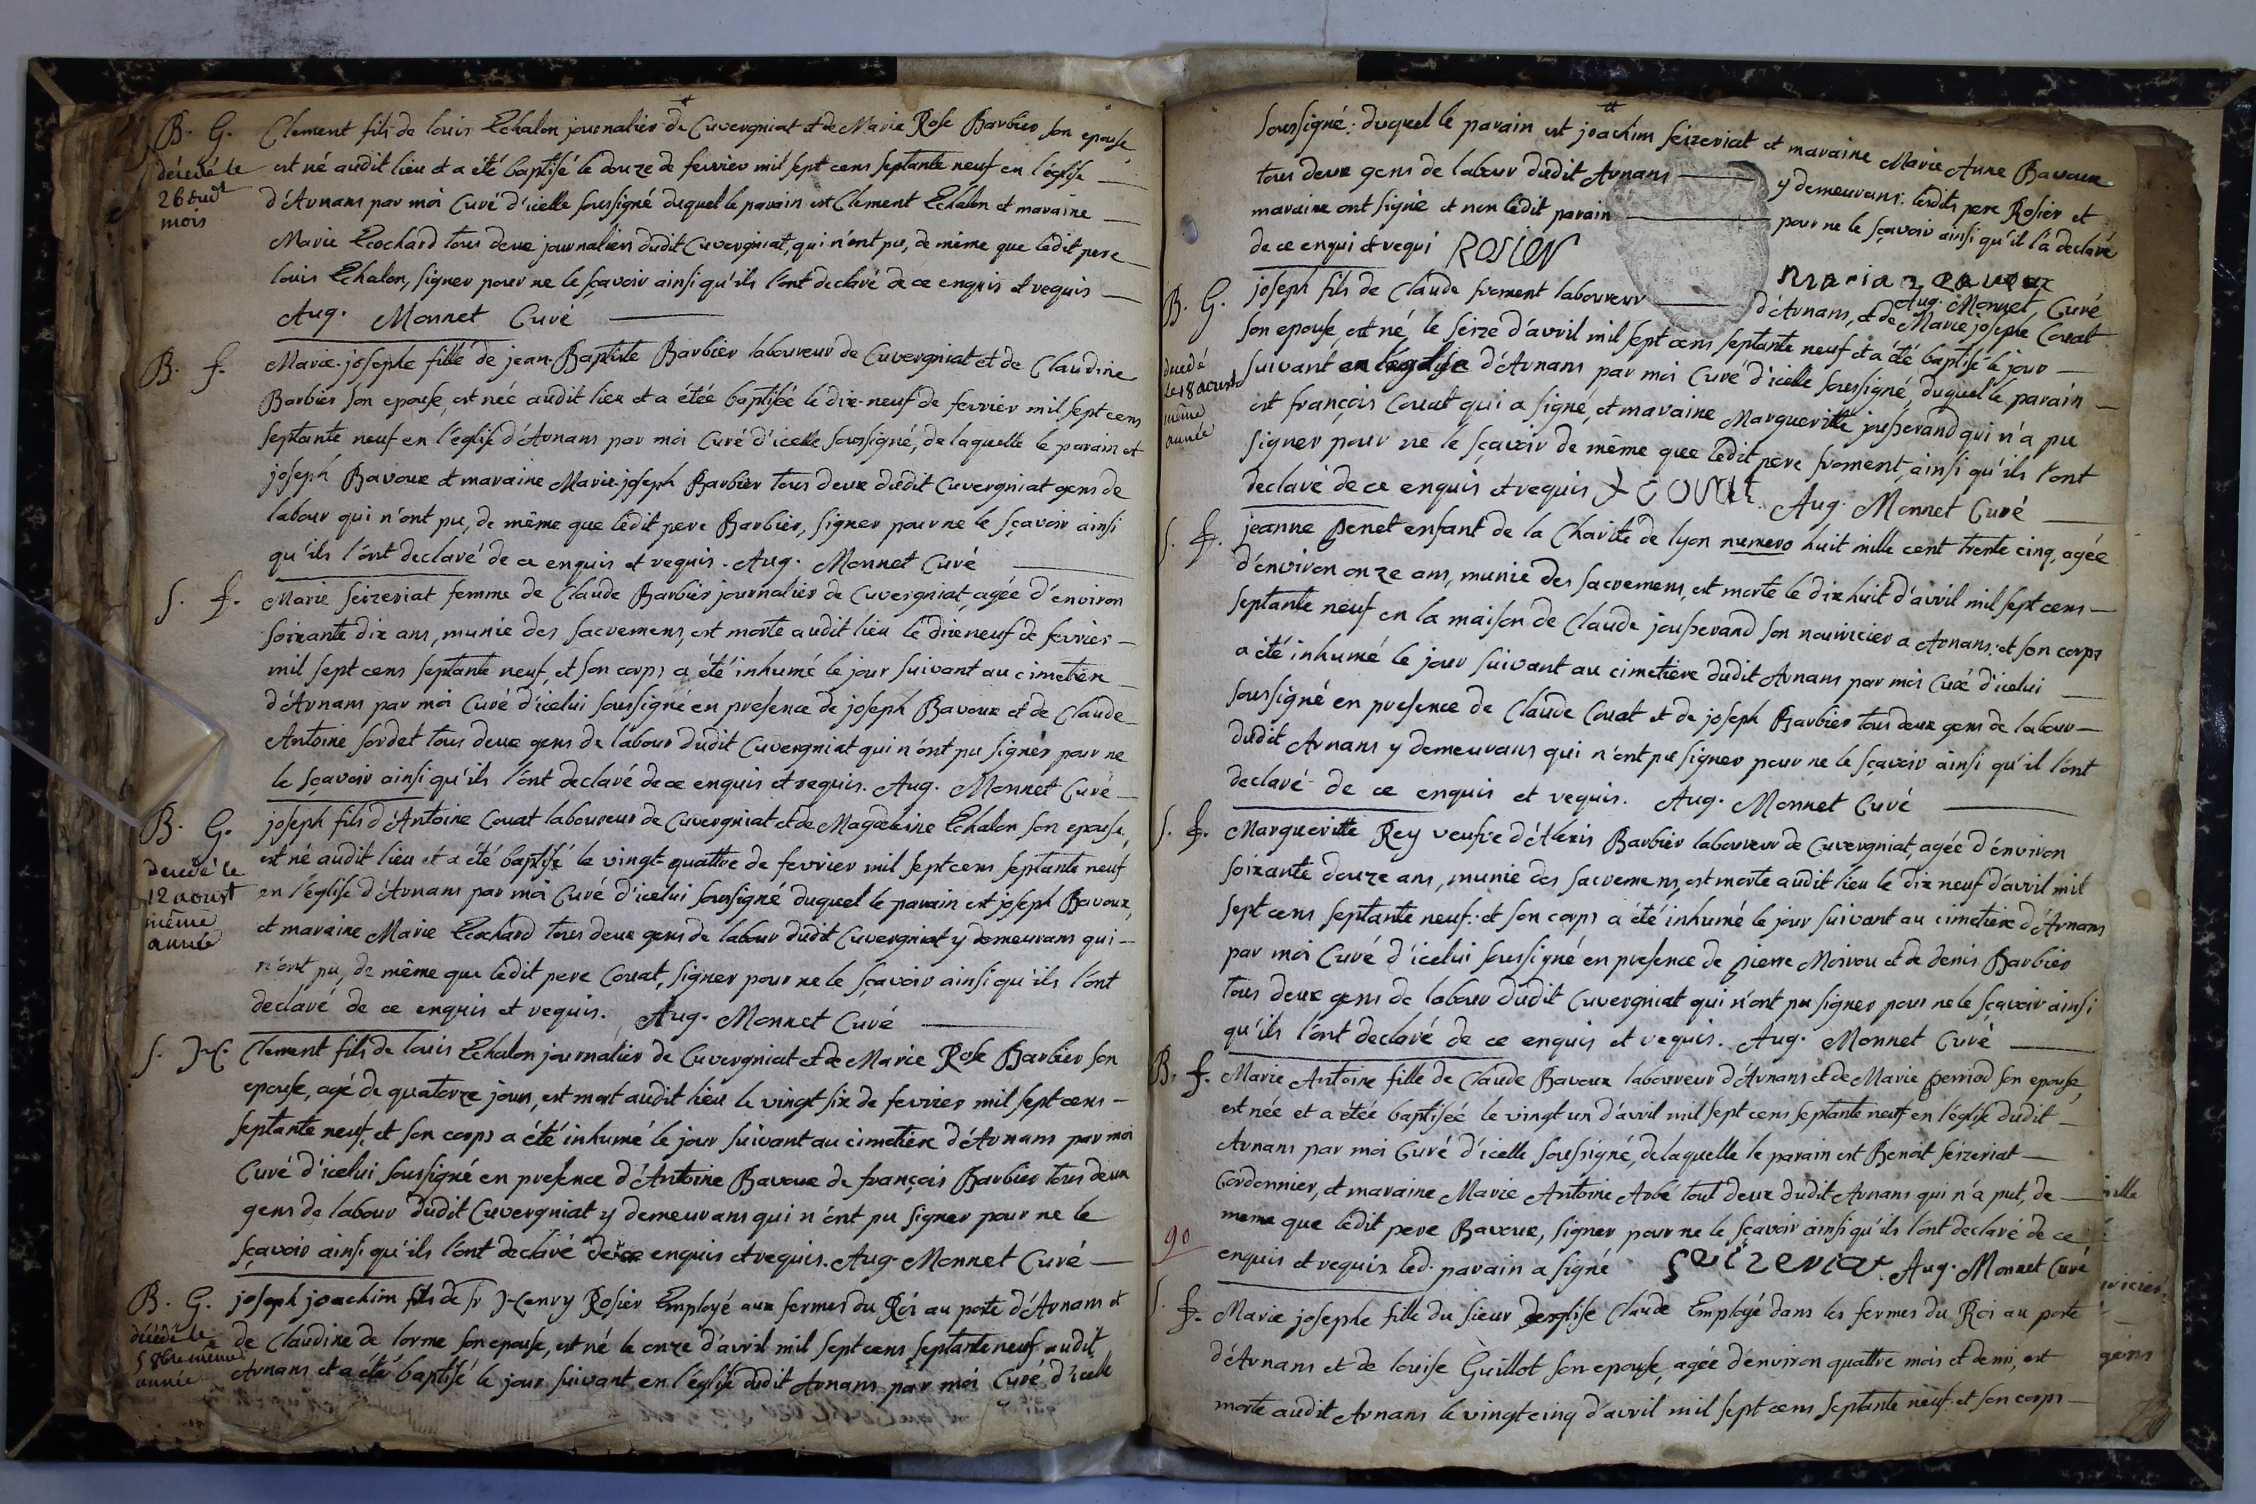 B. G. Clement fils de louis Echalon journalier de Cuvergniat et de Marie Rose Barbier son epouse,
décédé le est né audit lieu et a été baptisé le douze de fevrier mil sept cens septante neuf en l'église
26 dud d'Arnans par moi Curé d'icelle soussigné duquel le parain est Clement Echalon et maraine
mois
Marie Ecochard tous deux journaliers dudit Cuvergniat, qui n'ont pu, de même que ledit pere
louis Echalon, signer pour ne le sçavoir ainsi qu'ils l'ont declaré de ce enquis et requis
Aug. Monnet Curé
B. f. Marie-josephe fille de jean-Baptiste Barbier laboureur de Cuvergniat et de Claudine
Barbier son epouse, est née audit lieu et a étée baptisée le dix-neuf de fevrier mil sept cens
septante neuf en l'église d'Arnans par moi Curé d'icelle soussigné, de laquelle le parain est
joseph Bavoux et maraine Marie-joseph Barbier tous deux dudit Cuvergniat gens de
labour qui n'ont pu, de même que ledit pere Barbier, signer pour ne le sçavoir ainsi
qu'ils l'ont declaré de ce enquis et requis. Aug. Monnet Curé
S. f. Marie seizeriat femme de Claude Barbier journalier de Cuvergniat, agée d'environ
soixante dix ans, munie des sacremens, est morte audit lieu le dix neuf de fevrier
mil sept cens septante neuf, et son corps a été inhumé le jour suivant au cimetiere
d'Arnans par moi Curé d'icelui soussigné en presence de joseph Bavoux et de Claude
Antoine sordet tous deux gens de labour dudit Cuvergniat qui n'ont pu signer pour ne
le sçavoir ainsi qu'ils l'ont declaré de ce enquis et requis. Aug. Monnet Curé
B. G. joseph fils d'Antoine Couat laboureur de Cuvergniat et de Magdeleine Echalon son epouse,
decedé le est né audit lieu et a été baptisé le vingt-quattre de fevrier mil sept cens septante neuf
12 aoust en l'église d'Arnans par moi Curé d'icelui soussigné duquel le parain est joseph Bavoux,
même
année et maraine Marie Ecochard tous deux gens de labour dudit Cuvergniat y demeurans qui
n'ont pu, de même que ledit pere Couat, signer pour ne le sçavoir ainsi qu'ils l'ont
declaré de ce enquis et requis. Aug. Monnet Curé
S. G. Clement fils de louis Echalon journalier de Cuvergniat et de Marie Rose Barbier son
epouse, agé de quatorze jours, est mort audit lieu le vingt six de fevrier mil sept cens
septante neuf, et son corps a été inhumé le jour suivant au cimetiere d'Arnans par moi
Curé d'icelui soussigné en presence d'Antoine Bavoux de françois Barbier tous deux
gens de labour dudit Cuvergniat y demeurans qui n'ont pu signer pour ne le
sçavoir ainsi qu'ils l'ont declaré de ce enquis et requis. Aug. Monnet Curé
B. G. joseph joachim fils de sr henry Rosier Employé aux fermes du Roi au poste d'Arnans et
décédé le de Claudine de lorme son epouse, est né le onze d'avril mil sept cens septante neuf audit
5 8bre même
année Arnans et a été baptisé le jour suivant en l'église dudit Arnans par moi Curé d'icelle
soussigné: duquel le parain est joachim seizeriat et maraine Marie Anne Bavoux
tous deux gens de labour dudit Arnans y demeurans: lesdits pere Rosier et
maraine ont signé et non ledit parain pour ne le sçavoir ainsi qu'il l'a declaré
de ce enqui et requi Rosier
Aug. Monnet Curé
B. G. joseph fils de Claude froment laboureur d'Arnans, et de Marie josephe Couat
son epouse, est né le seize d'avril mil sept cens septante neuf et a été baptisé le jour
decedé suivant en l'eglise d'Arnans par moi Curé d'icelle soussigné, duquel le parain
le 18 aoust
même est françois Couat qui a signé, et maraine Margueritte jusserand qui n'a pu
année signer pour ne le sçavoir de même que ledit pere froment, ainsi qu'ils l'ont
declaré de ce enquis et requis f couat Aug. Monnet Curé
S. f. jeanne penet enfant de la Charité de lyon numero huit mille cent trente cinq, agée
d'environ onze ans, munie des sacremens, est morte le dix huit d'avril mil sept cens
septante neuf en la maison de Claude jousserand son nouricier a Arnans: et son corps
a été inhumé le jour suivant au cimetiere dudit Arnans par moi Curé d'icelui
soussigné en presence de Claude Couat et de joseph Barbier tous deux gens de labour
dudit Arnans y demeurans qui n'ont pu signer pour ne le sçavoir ainsi qu'il l'ont
declaré de ce enquis et requis. Aug. Monnet Curé
S. f. Margueritte Rey veufve d'Alexis Barbier laboureur de Cuvergniat, agée d'environ
soixante douze ans, munie des sacremens, est morte audit lieu le dix neuf d'avril mil
sept cens septante neuf: et son corps a été inhumé le jour suivant au cimetiere d'Arnans
par moi Curé d'icelui soussigné en presence de pierre Moirou et de denis Barbier
tous deux gens de labour dudit Cuvergniat qui n'ont pu signer pour ne le sçavoir ainsi
qu'ils l'ont declaré de ce enquis et requis. Aug. Monnet Curé
B. f. Marie Antoine fille de Claude Bavoux laboureur d'Arnans et de Marie perriod son epouse,
est née et a étée baptiseé le vingt un d'avril mil sept cens septante neuf en l'église dudit
Arnans par moi Curé d'icelle soussigné, de laquelle le parain est Benoit seizeriat
Cordonnier, et maraine Marie Antoine Arbé tout deux dudit Arnans qui n'a put, de
90 meme que ledit pere Bavoux, signer pour ne le sçavoir ainsi qu'ils l'ont declaré de ce
enquis et requis led. parain a signé seizeriat Aug. Monnet Curé
S. f. Marie josephe fille du sieur Claude Employé dans les fermes du Roi au poste
d'Arnans et de louise Guillot son epouse, agée d'environ quattre mois et demi, est
morte audit Arnans le vingt cinq d'avril mil sept cens septante neuf: et son corps